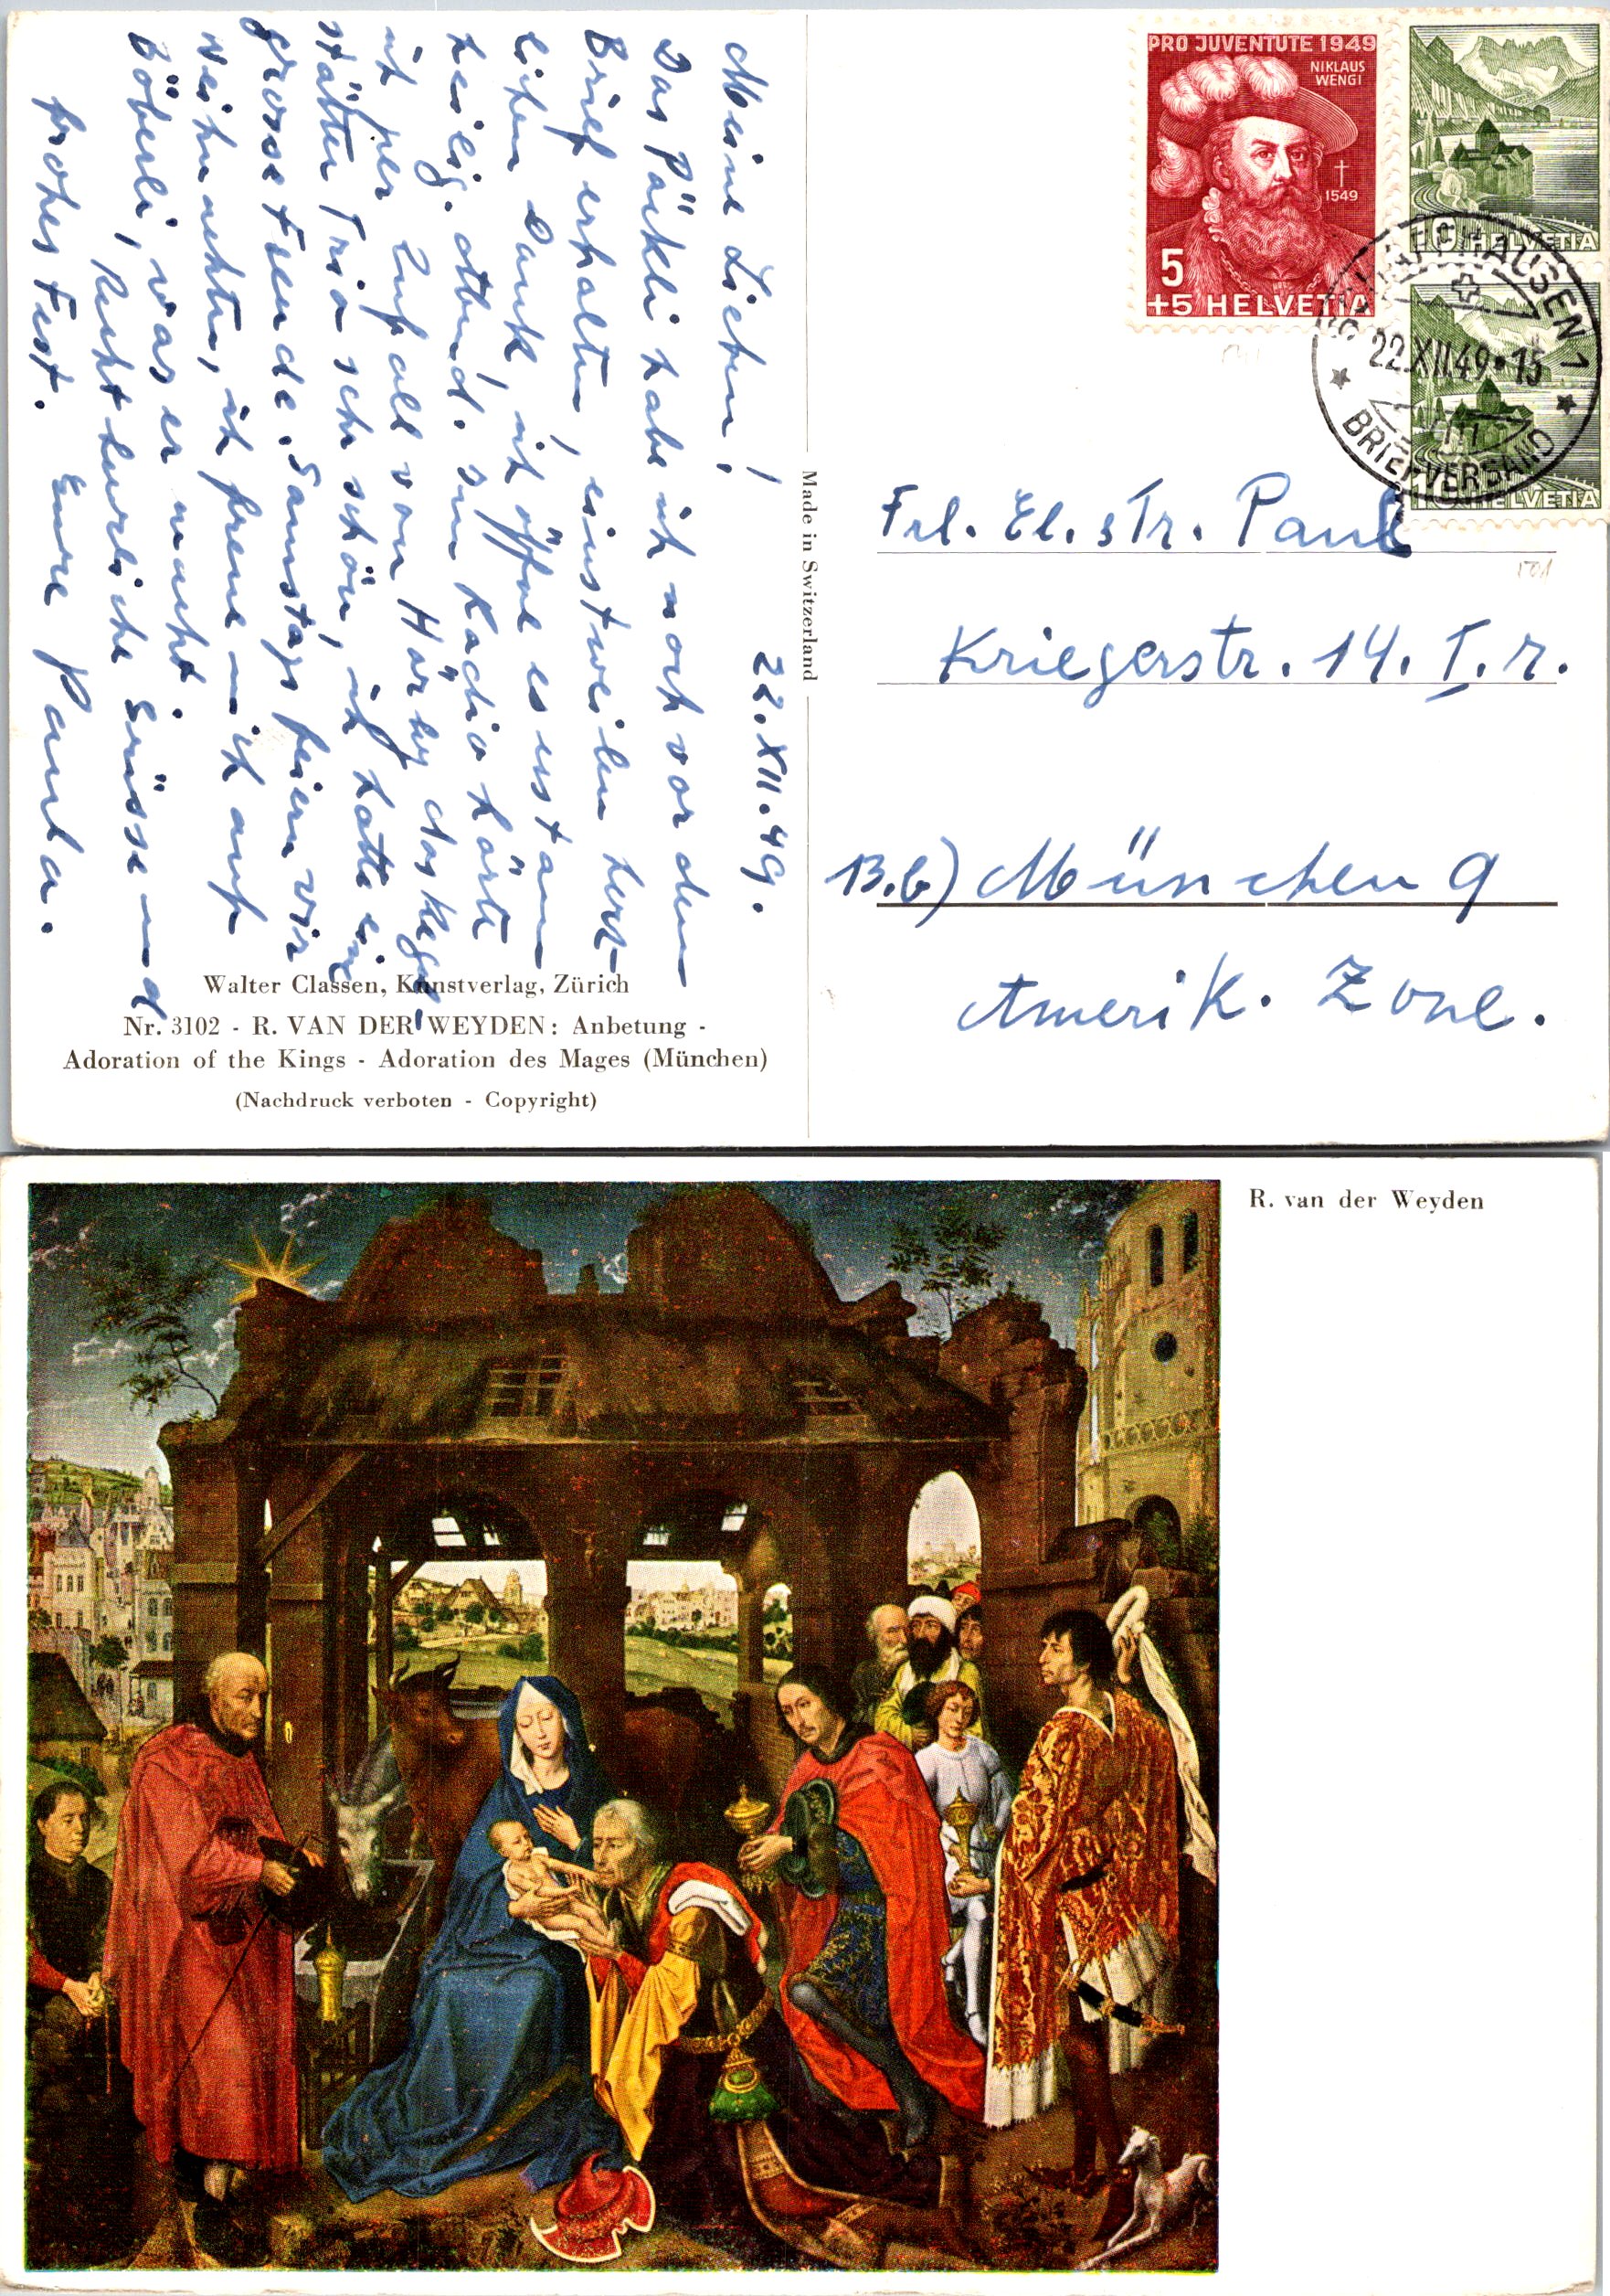 22.XII.49.
Meine Lieben!
Das Päckli habe ich noch vor dem
Brief erhalten, einstweilen herz-
lichen Dank, ich öffne es erst am
heilig. Abend. Im Radio hörte
ich per Zufall von
stätter Trio sehr schön, ich hatte eine
grosse Freude. Samstags feiern wir
Weihnachten, ich freue mich auf
Böberli, was er macht.
Recht herzliche Grüsse und
frohes Fest. Eure Paula.
Walter Classen, Kunstverlag, Zürich
Nr. 3102 - R. VAN DER WEYDEN: Anbetung -
Adoration of the Kings - Adoration des Mages (München)
(Nachdruck verboten - Copyright)
Made in Switzerland
PRO JUVENTUTE 1949
NIKLAUS
WENGI
† 1549
5
+5 HELVETIA
10 HELVETIA
10 HELVETIA
SCHAFFHAUSEN 1
22.XII.49·15
BRIEFVERSAND
Frl. El. str. Paul
Kriegerstr. 14. I. r.
13.b) München 9
Amerik. Zone.
R. van der Weyden